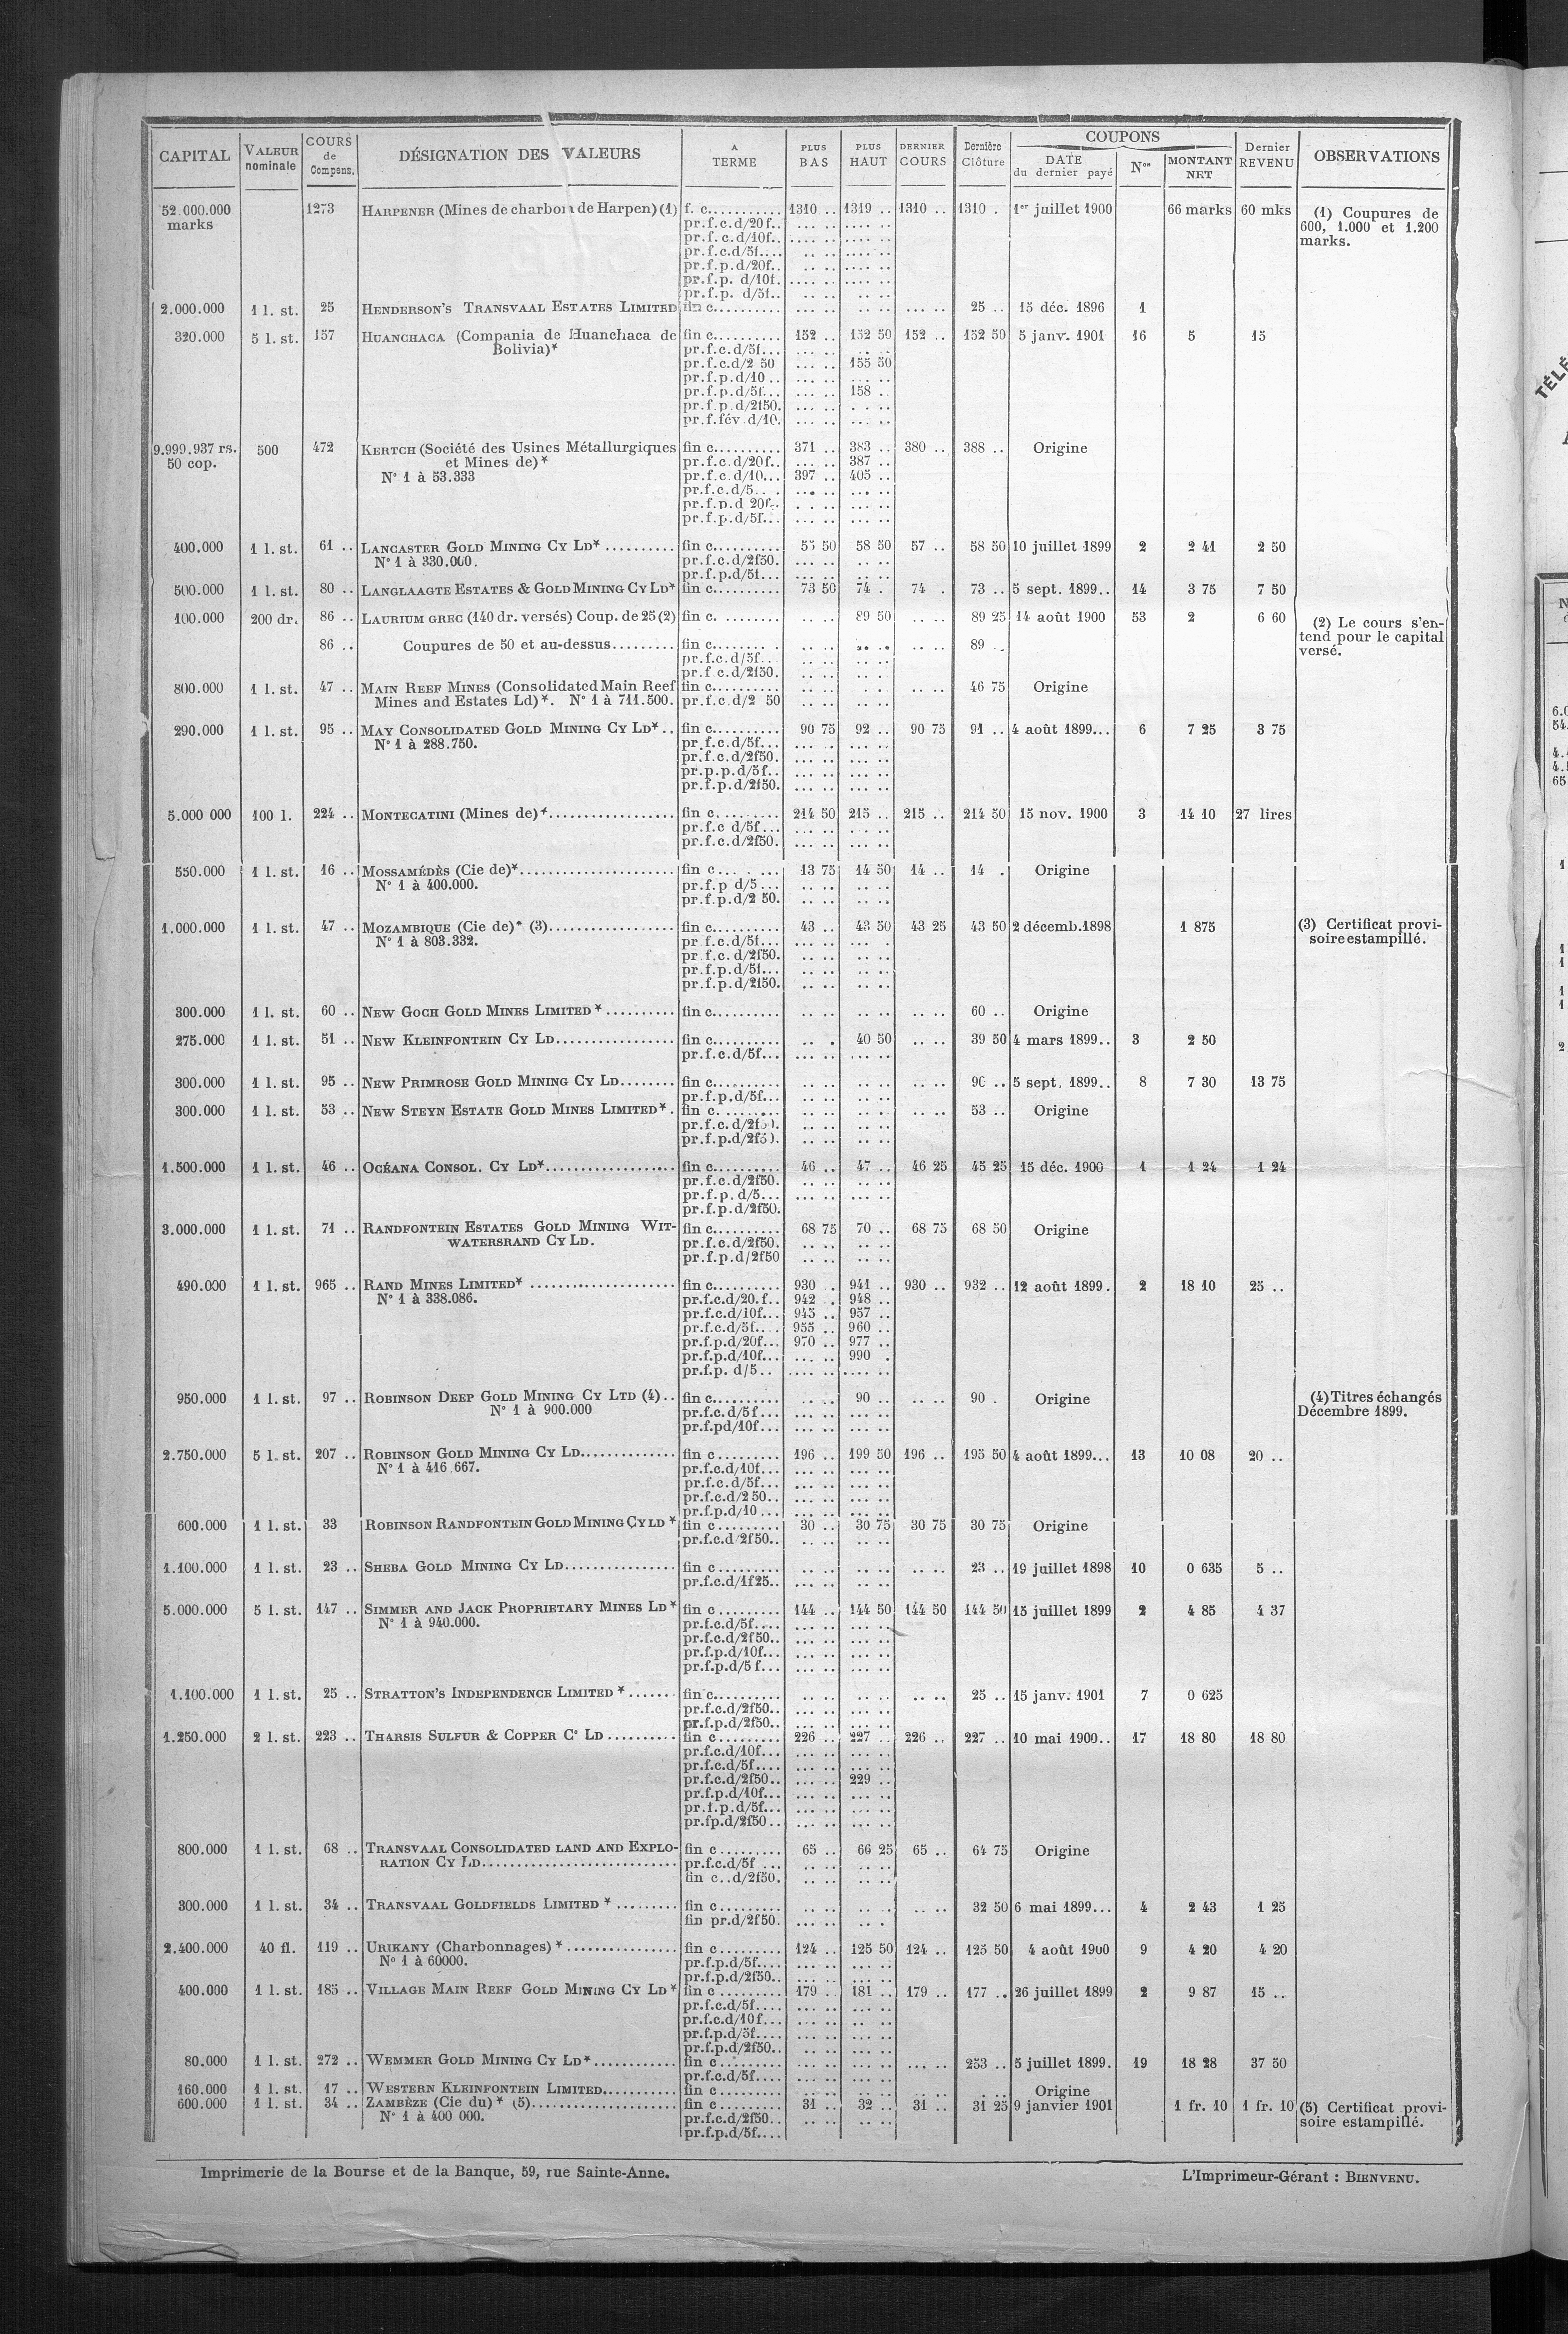 CAPITAL | VALEUR nominale | COURS de Compens. | DÉSIGNATION DES VALEURS | A TERME | PLUS BAS | PLUS HAUT | DERNIER COURS | Dernière Clôture | COUPONS DATE du dernier payé | Nos | MONTANT NET | Dernier REVENU | OBSERVATIONS
52.000.000 1273 HARPENER (Mines de charbon de Harpen) (1) f. c........... 1310 .. 1319 .. 1310 .. 1310 . 1er juillet 1900 66 marks 60 mks (1) Coupures de
marks pr.f.c.d/20f.. 600, 1.000 et 1.200
pr.f.c.d/10f.. marks.
pr.f.c.d/5f....
pr.f.p.d/20f..
pr.f.p. d/10f.
pr.f.p. d/5f..
2.000.000 1 l. st. 25 HENDERSON'S TRANSVAAL ESTATES LIMITED fin c.......... 25 .. 15 déc. 1896 1
320.000 5 l. st. 157 HUANCHACA (Compania de Huanchaca de fin c.......... 152 .. 152 50 152 .. 152 50 5 janv. 1901 16 5 15
Bolivia)* pr.f.c.d/5f...
pr.f.c.d/2 50 155 50
pr.f.p.d/10 ..
pr.f.p.d/5f... 158 ..
pr.f.p.d/2f50.
pr.f.fév.d/10.
9.999.937 rs. 500 472 KERTCH (Société des Usines Métallurgiques fin c.......... 371 .. 383 .. 380 .. 388 .. Origine
50 cop. et Mines de)* pr.f.c.d/20f.. 387 ..
N° 1 à 53.333 pr.f.c.d/10... 397 .. 405 ..
pr.f.c.d/5.. .
pr.f.p.d 20f..
pr.f.p.d/5f...
400.000 1 l. st. 61 .. LANCASTER GOLD MINING CY LD* .......... fin c.......... 55 50 58 50 57 .. 58 50 10 juillet 1899 2 2 41 2 50
N° 1 à 330.000. pr.f.c.d/2f50.
pr.f.p.d/5f...
500.000 1 l. st. 80 .. LANGLAAGTE ESTATES & GOLD MINING CY LD* fin c.......... 73 50 74 . 74 . 73 .. 5 sept. 1899.. 14 3 75 7 50
100.000 200 dr. 86 .. LAURIUM GREC (140 dr. versés) Coup. de 25 (2) fin c. ........ 89 50 89 25 14 août 1900 53 2 6 60 (2) Le cours s'en-
tend pour le capital
86 .. Coupures de 50 et au-dessus......... fin c........ . 89 .. versé.
pr.f.c.d/5f..
pr.f c.d/2f50.
800.000 1 l. st. 47 .. MAIN REEF MINES (Consolidated Main Reef fin c.......... 46 75 Origine
Mines and Estates Ld)*. N° 1 à 711.500. pr.f.c.d/2 50
290.000 1 l. st. 95 .. MAY CONSOLIDATED GOLD MINING CY LD*.. fin c.......... 90 75 92 .. 90 75 91 .. 4 août 1899... 6 7 25 3 75
N° 1 à 288.750. pr.f.c.d/5f...
pr.f.c.d/2f50.
pr.p.p.d/5f..
pr.f.p.d/2f50.
5.000 000 100 l. 224 .. MONTECATINI (Mines de)*.................. fin c. ........ 214 50 215 .. 215 .. 214 50 15 nov. 1900 3 14 10 27 lires
pr.f.c d/5f...
pr.f.c.d/2f50.
550.000 1 l. st. 16 .. MOSSAMÉDÈS (Cie de)*...................... fin c... . ... 13 75 14 50 14 .. 14 . Origine
N° 1 à 400.000. pr.f.p d/5 ...
pr.f.p.d/2 50.
1.000.000 1 l. st. 47 .. MOZAMBIQUE (Cie de)* (3).................. fin c.......... 43 .. 43 50 43 25 43 50 2 décemb.1898 1 875 (3) Certificat provi-
N° 1 à 803.332. pr f.c.d/5f... soire estampillé.
pr f.c. d/2f50.
pr.f.p.d/5f...
pr.f.p.d/2f50.
300.000 1 l. st. 60 .. NEW GOCH GOLD MINES LIMITED * .......... fin c.......... 60 .. Origine
275.000 1 l. st. 51 .. NEW KLEINFONTEIN CY LD................. fin c.......... 40 50 39 50 4 mars 1899.. 3 2 50
pr.f.c.d/5f...
300.000 1 l. st. 95 .. NEW PRIMROSE GOLD MINING CY LD........ fin c.......... 90 .. 5 sept. 1899.. 8 7 30 13 75
pr.f.p.d/5f...
300.000 1 l. st. 53 .. NEW STEYN ESTATE GOLD MINES LIMITED*. fin c. ........ 53 .. Origine
pr.f.c.d/2f50.
pr.f.p.d/2f50.
1.500.000 1 l. st. 46 .. OCÉANA CONSOL. CY LD*................... fin c.......... 46 .. 47 .. 46 25 45 25 15 déc. 1900 1 1 24 1 24
pr.f.c.d/2f50.
pr.f.p. d/5...
pr.f.p.d/2f50.
3.000.000 1 l. st. 71 .. RANDFONTEIN ESTATES GOLD MINING WIT- fin c.......... 68 75 70 .. 68 75 68 50 Origine
WATERSRAND CY LD. pr.f.c.d/2f50.
pr.f.p.d/2f50
490.000 1 l. st. 965 .. RAND MINES LIMITED* ..................... fin c.......... 930 . 941 .. 930 .. 932 .. 12 août 1899. 2 18 10 25 ..
N° 1 à 338.086. pr.f.c.d/20.f.. 942 . 948 ..
pr.f.c.d/10f... 945 .. 957 ..
pr.f.c.d/5f.... 955 .. 960 ..
pr.f.p.d/20f... 970 .. 977 ..
pr.f.p.d/10f... 990 .
pr.f.p. d/5 ..
950.000 1 l. st. 97 .. ROBINSON DEEP GOLD MINING CY LTD (4).. fin c.......... 90 .. 90 . Origine (4) Titres échangés
N° 1 à 900.000 pr.f.c.d/5f... Décembre 1899.
pr.f.pd/10f...
2.750.000 5 l. st. 207 .. ROBINSON GOLD MINING CY LD.............. fin c ......... 196 .. 199 50 196 .. 195 50 4 août 1899... 13 10 08 20 ..
N° 1 à 416 667. pr.f.c.d/10f...
pr.f.c.d/5f...
pr.f.c.d/2 50..
pr.f.p.d/10 ...
600.000 1 l. st. 33 ROBINSON RANDFONTEIN GOLD MINING CY LD * fin c ......... 30 .. 30 75 30 75 30 75 Origine
pr.f.c.d/2f50..
1.100.000 1 l. st. 23 .. SHEBA GOLD MINING CY LD................ fin c ......... 23 .. 19 juillet 1898 10 0 635 5 ..
pr.f.c.d/1f25..
5.000.000 5 l. st. 147 .. SIMMER AND JACK PROPRIETARY MINES LD* fin c ......... 144 .. 144 50 144 50 144 50 15 juillet 1899 2 4 85 4 37
N° 1 à 940.000. pr.f.c.d/5f....
pr.f.c.d/2f50..
pr.f.p.d/10f...
pr.f.p.d/5 f...
1.100.000 1 l. st. 25 .. STRATTON'S INDEPENDENCE LIMITED *....... fin c.......... 25 .. 15 janv. 1901 7 0 625
pr.f.c.d/2f50..
pr.f.p.d/2f50..
1.250.000 2 l. st. 223 .. THARSIS SULFUR & COPPER C° LD .......... fin c ......... 226 .. 227 .. 226 .. 227 .. 10 mai 1900.. 17 18 80 18 80
pr.f.c.d/10f...
pr.f.c.d/5f....
pr.f.c.d/2f50.. 229 ..
pr.f.p.d/10f...
pr.f.p.d/5f...
pr.fp.d/2f50 ..
800.000 1 l. st. 68 .. TRANSVAAL CONSOLIDATED LAND AND EXPLO- fin c ......... 65 .. 66 25 65 .. 64 75 Origine
RATION CY LD............................ pr.f.c.d/5f ...
fin c..d/2f50.
300.000 1 l. st. 34 .. TRANSVAAL GOLDFIELDS LIMITED * ......... fin c ......... 32 50 6 mai 1899... 4 2 43 1 25
fin pr.d/2f50.
2.400.000 40 fl. 119 .. URIKANY (Charbonnages) *................ fin c ......... 124 .. 125 50 124 .. 125 50 4 août 1900 9 4 20 4 20
N° 1 à 60000. pr.f.p.d/5f....
pr.f.p.d/2f50..
400.000 1 l. st. 185 .. VILLAGE MAIN REEF GOLD MINING CY LD* fin c ......... 179 .. 181 .. 179 .. 177 .. 26 juillet 1899 2 9 87 15 ..
pr.f.c.d/5f....
pr.f.c.d/10f...
pr.f.p.d/5f....
pr.f.p.d/2f50..
80.000 1 l. st. 272 .. WEMMER GOLD MINING CY LD*............ fin c ......... 253 .. 5 juillet 1899. 19 18 28 37 50
pr.f.c.d/5f....
160.000 1 l. st. 17 .. WESTERN KLEINFONTEIN LIMITED........... fin c ......... Origine
600.000 1 l. st. 34 .. ZAMBÈZE (Cie du) * (5)..................... fin c ......... 31 .. 32 .. 31 .. 31 25 9 janvier 1901 1 fr. 10 1 fr. 10 (5) Certificat provi-
N° 1 à 400 000. pr.f.c.d/2f50.. soire estampillé.
pr.f.p.d/5f....
Imprimerie de la Bourse et de la Banque, 59, rue Sainte-Anne. L'Imprimeur-Gérant : BIENVENU.